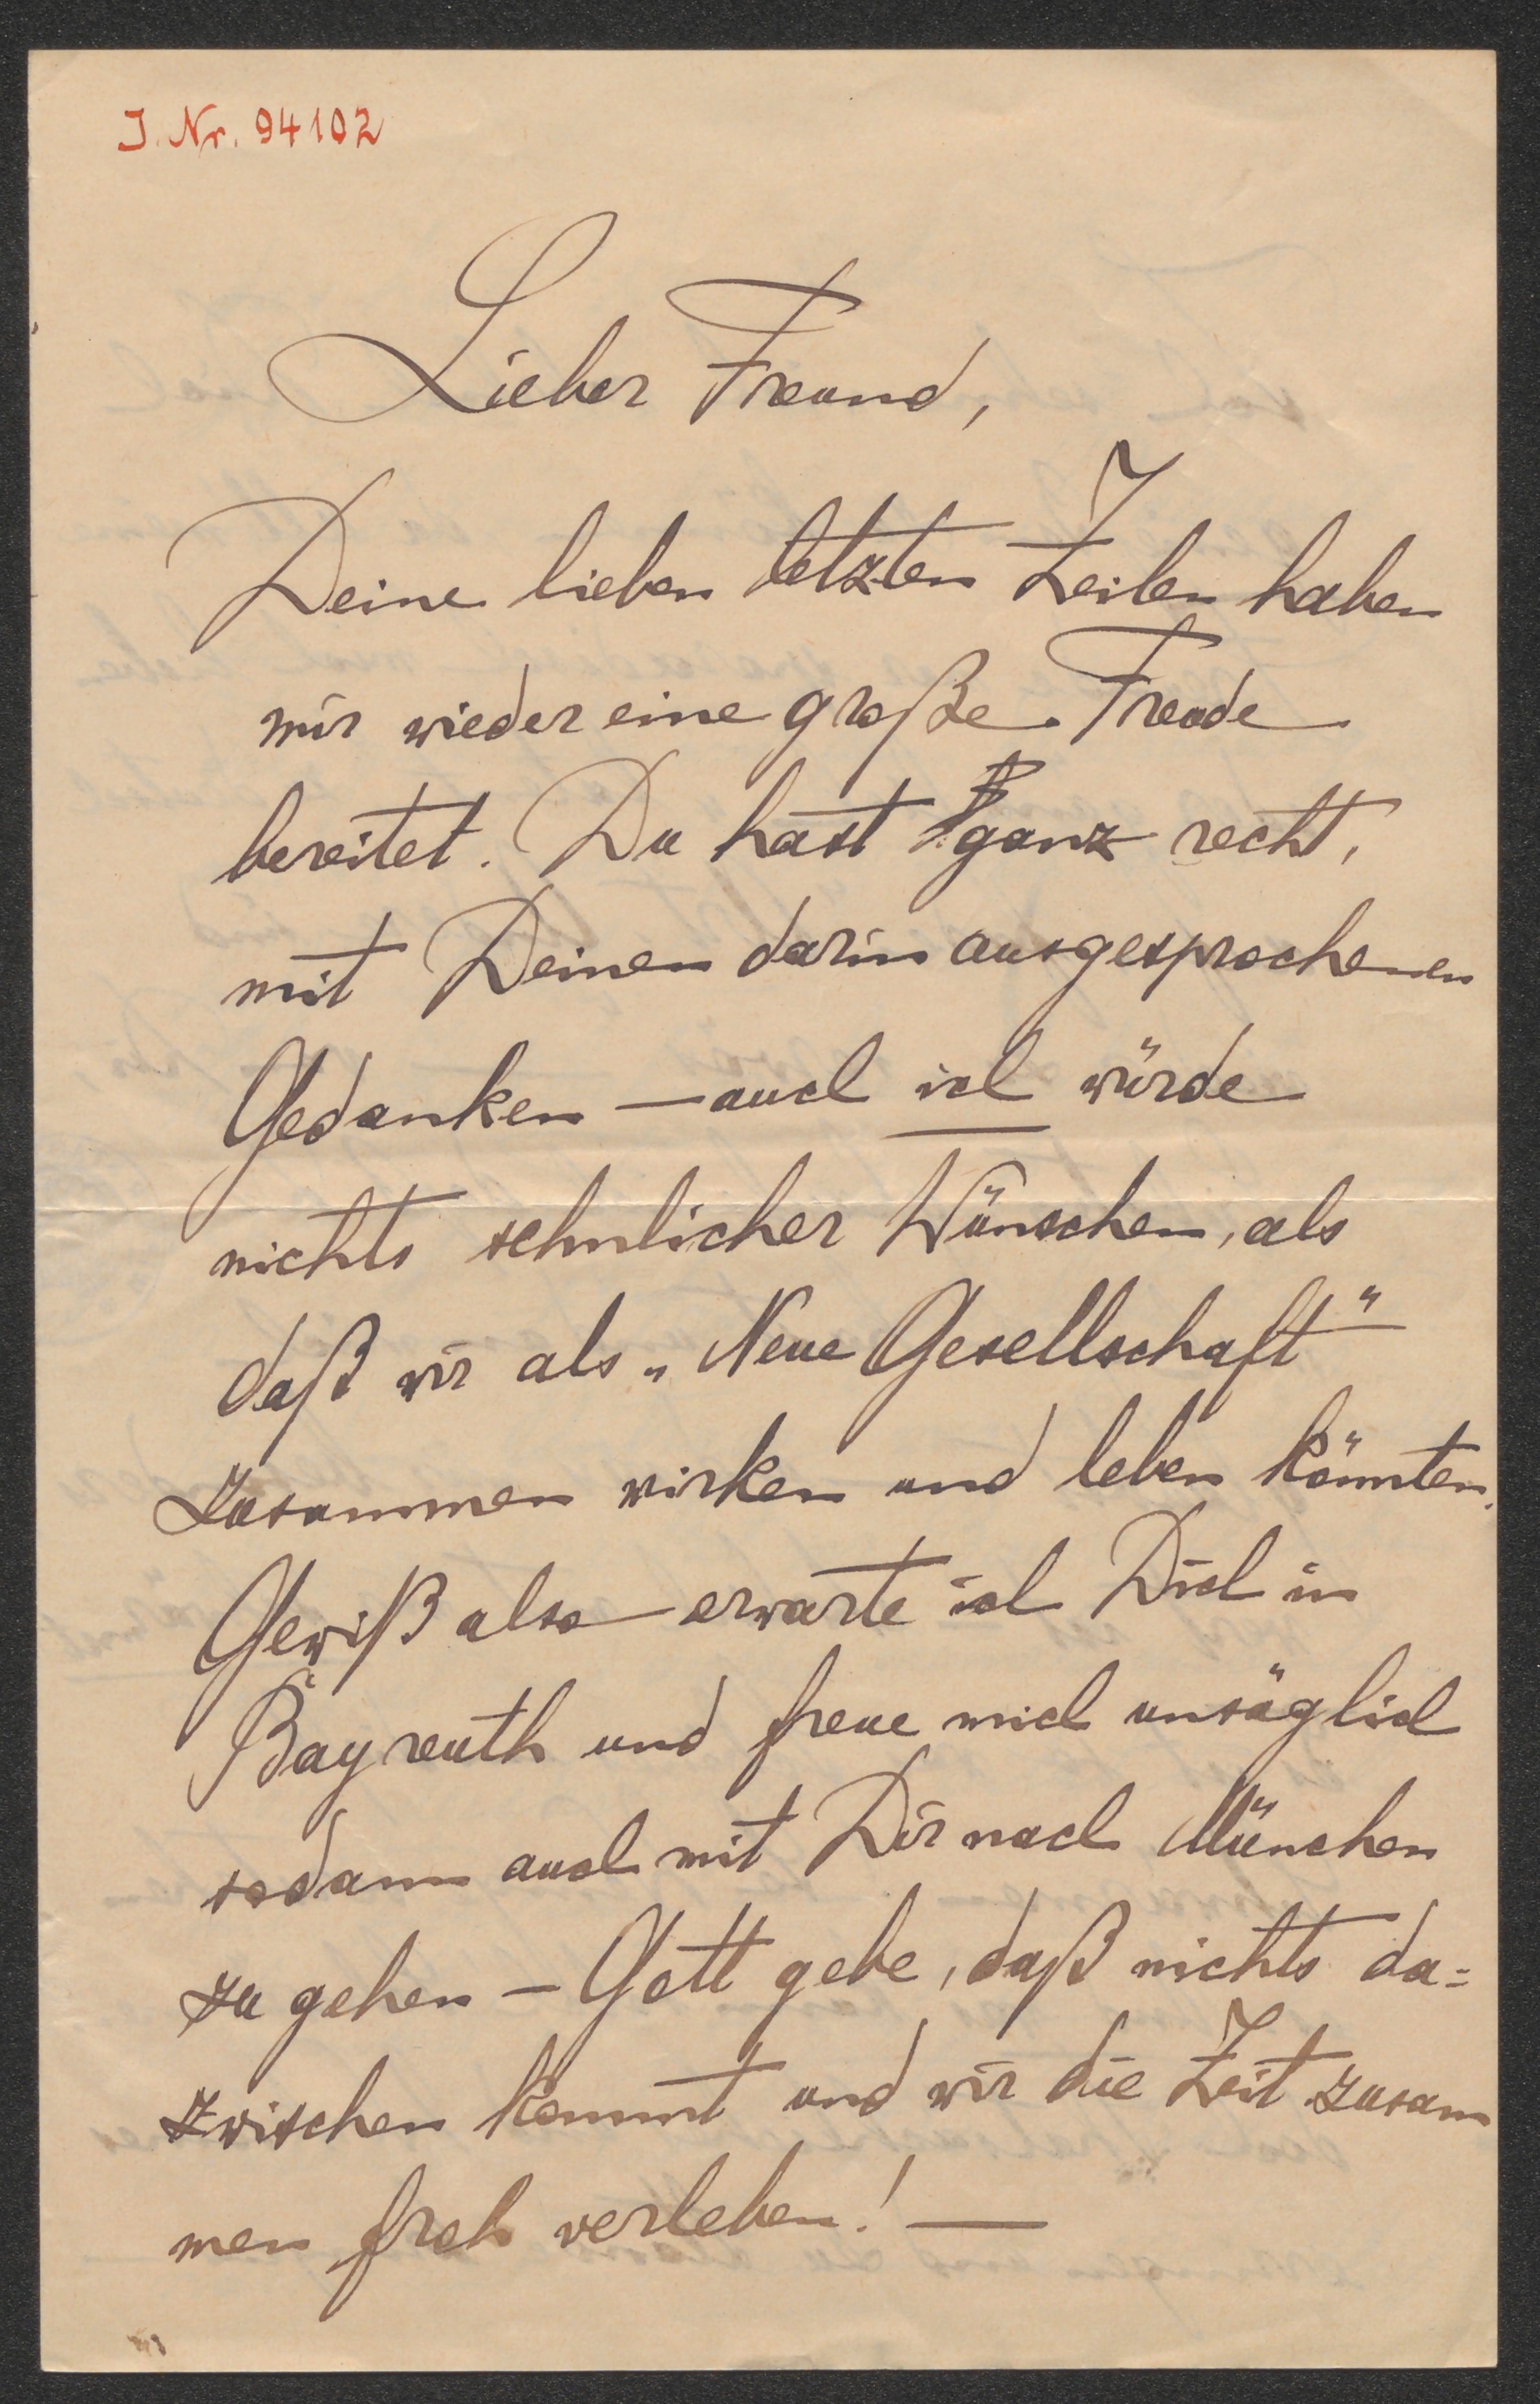 J. Nr. 94102
Lieber Freund,
Deine lieben letzten Zeilen haben
mir wieder eine große Freude
bereitet. Du hast ganz recht,
mit Deinen darin ausgesprochenen
Gedanken — auch ich würde
nichts sehnlicher Wünschen, als
daß wir als „Neue Gesellschaft"
zusammen wirken und leben könnten.
Gewiß also erwarte ich Dich in
Bayreuth und freue mich unsäglich
sodann auch mit Dir nach München
zu gehen — Gott gebe, daß nichts da=
zwischen kommt und wir die Zeit zusam
men froh verleben! —